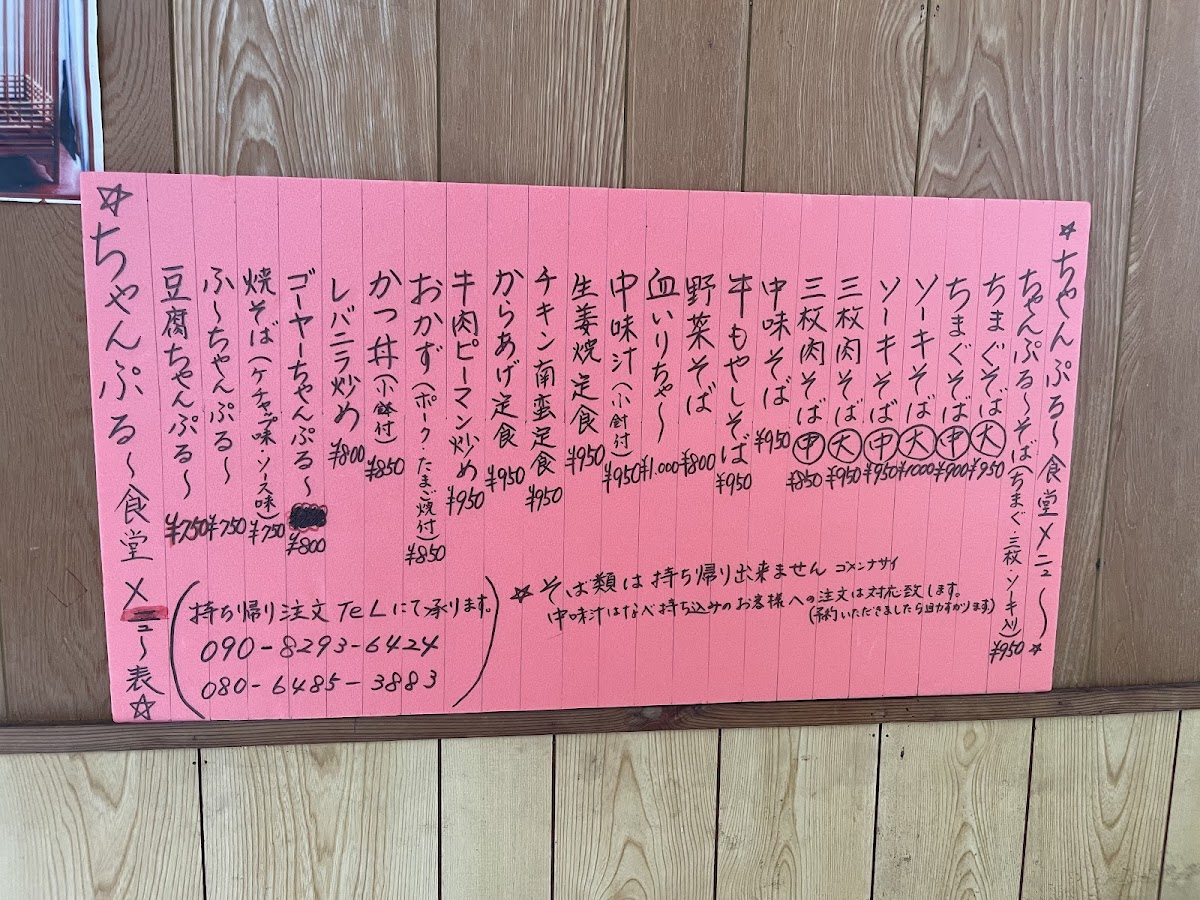 ☆ちゃんぷる〜食堂メニュー〜☆
ちゃんぷる〜そば(ちまぐ・三枚・ソーキ入)¥950
ちまぐそば(大)¥950
ちまぐそば(中)¥900
ソーキそば(大)¥1000
ソーキそば(中)¥950
三枚肉そば(大)¥950
三枚肉そば(中)¥850
中味そば¥950
牛もやしそば¥950
野菜そば¥800
血いりちゃ〜¥1.000
中味汁(小針付)¥950
生姜焼定食¥950
チキン南蛮定食¥950
からあげ定食¥950
牛肉ピーマン炒め¥950
おかず(ポーク・たまご焼付)¥850
かつ丼(小鉢付)¥850
レバニラ炒め¥800
ゴーヤーちゃんぷる〜¥800
焼そば(ケチャップ味・ソース味)¥750
ふ〜ちゃんぷる〜¥750
豆腐ちゃんぷる〜¥750
☆ちゃんぷる〜食堂メニュ〜表☆
☆そば類は持ち帰り出来ません ゴメンナサイ
中味汁はなべ持ち込みのお客様への注文は対応致します。
(予約いただきましたら迫力すかります)
(持ち帰り注文TeLにて承ります。
090-8293-6424
080-6485-3883)